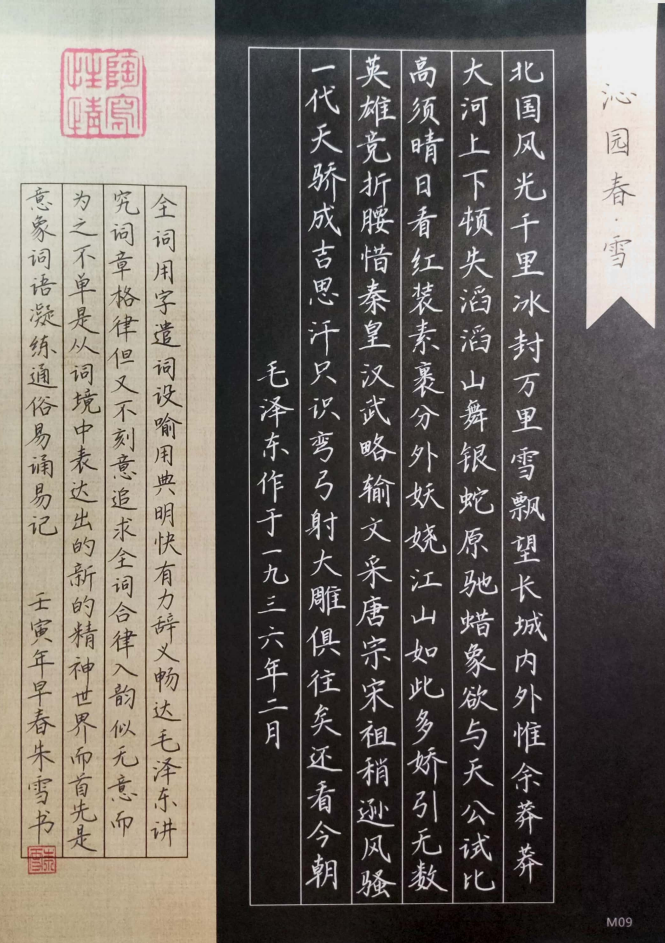 沁园春·雪
北国风光千里冰封万里雪飘望长城内外惟余莽莽
大河上下顿失滔滔山舞银蛇原驰蜡象欲与天公试比
高须晴日看红装素裹分外妖娆江山如此多娇引无数
英雄竞折腰惜秦皇汉武略输文采唐宗宋祖稍逊风骚
一代天骄成吉思汗只识弯弓射大雕俱往矣还看今朝
毛泽东作于一九三六年二月
陶写性情
全词用字遣词设喻用典明快有力辞义畅达毛泽东讲
究词章格律但又不刻意追求全词合律入韵似无意而
为之不单是从词境中表达出的新的精神世界而首先是
意象词语凝练通俗易诵易记 壬寅年早春朱雪书
朱雪
M09